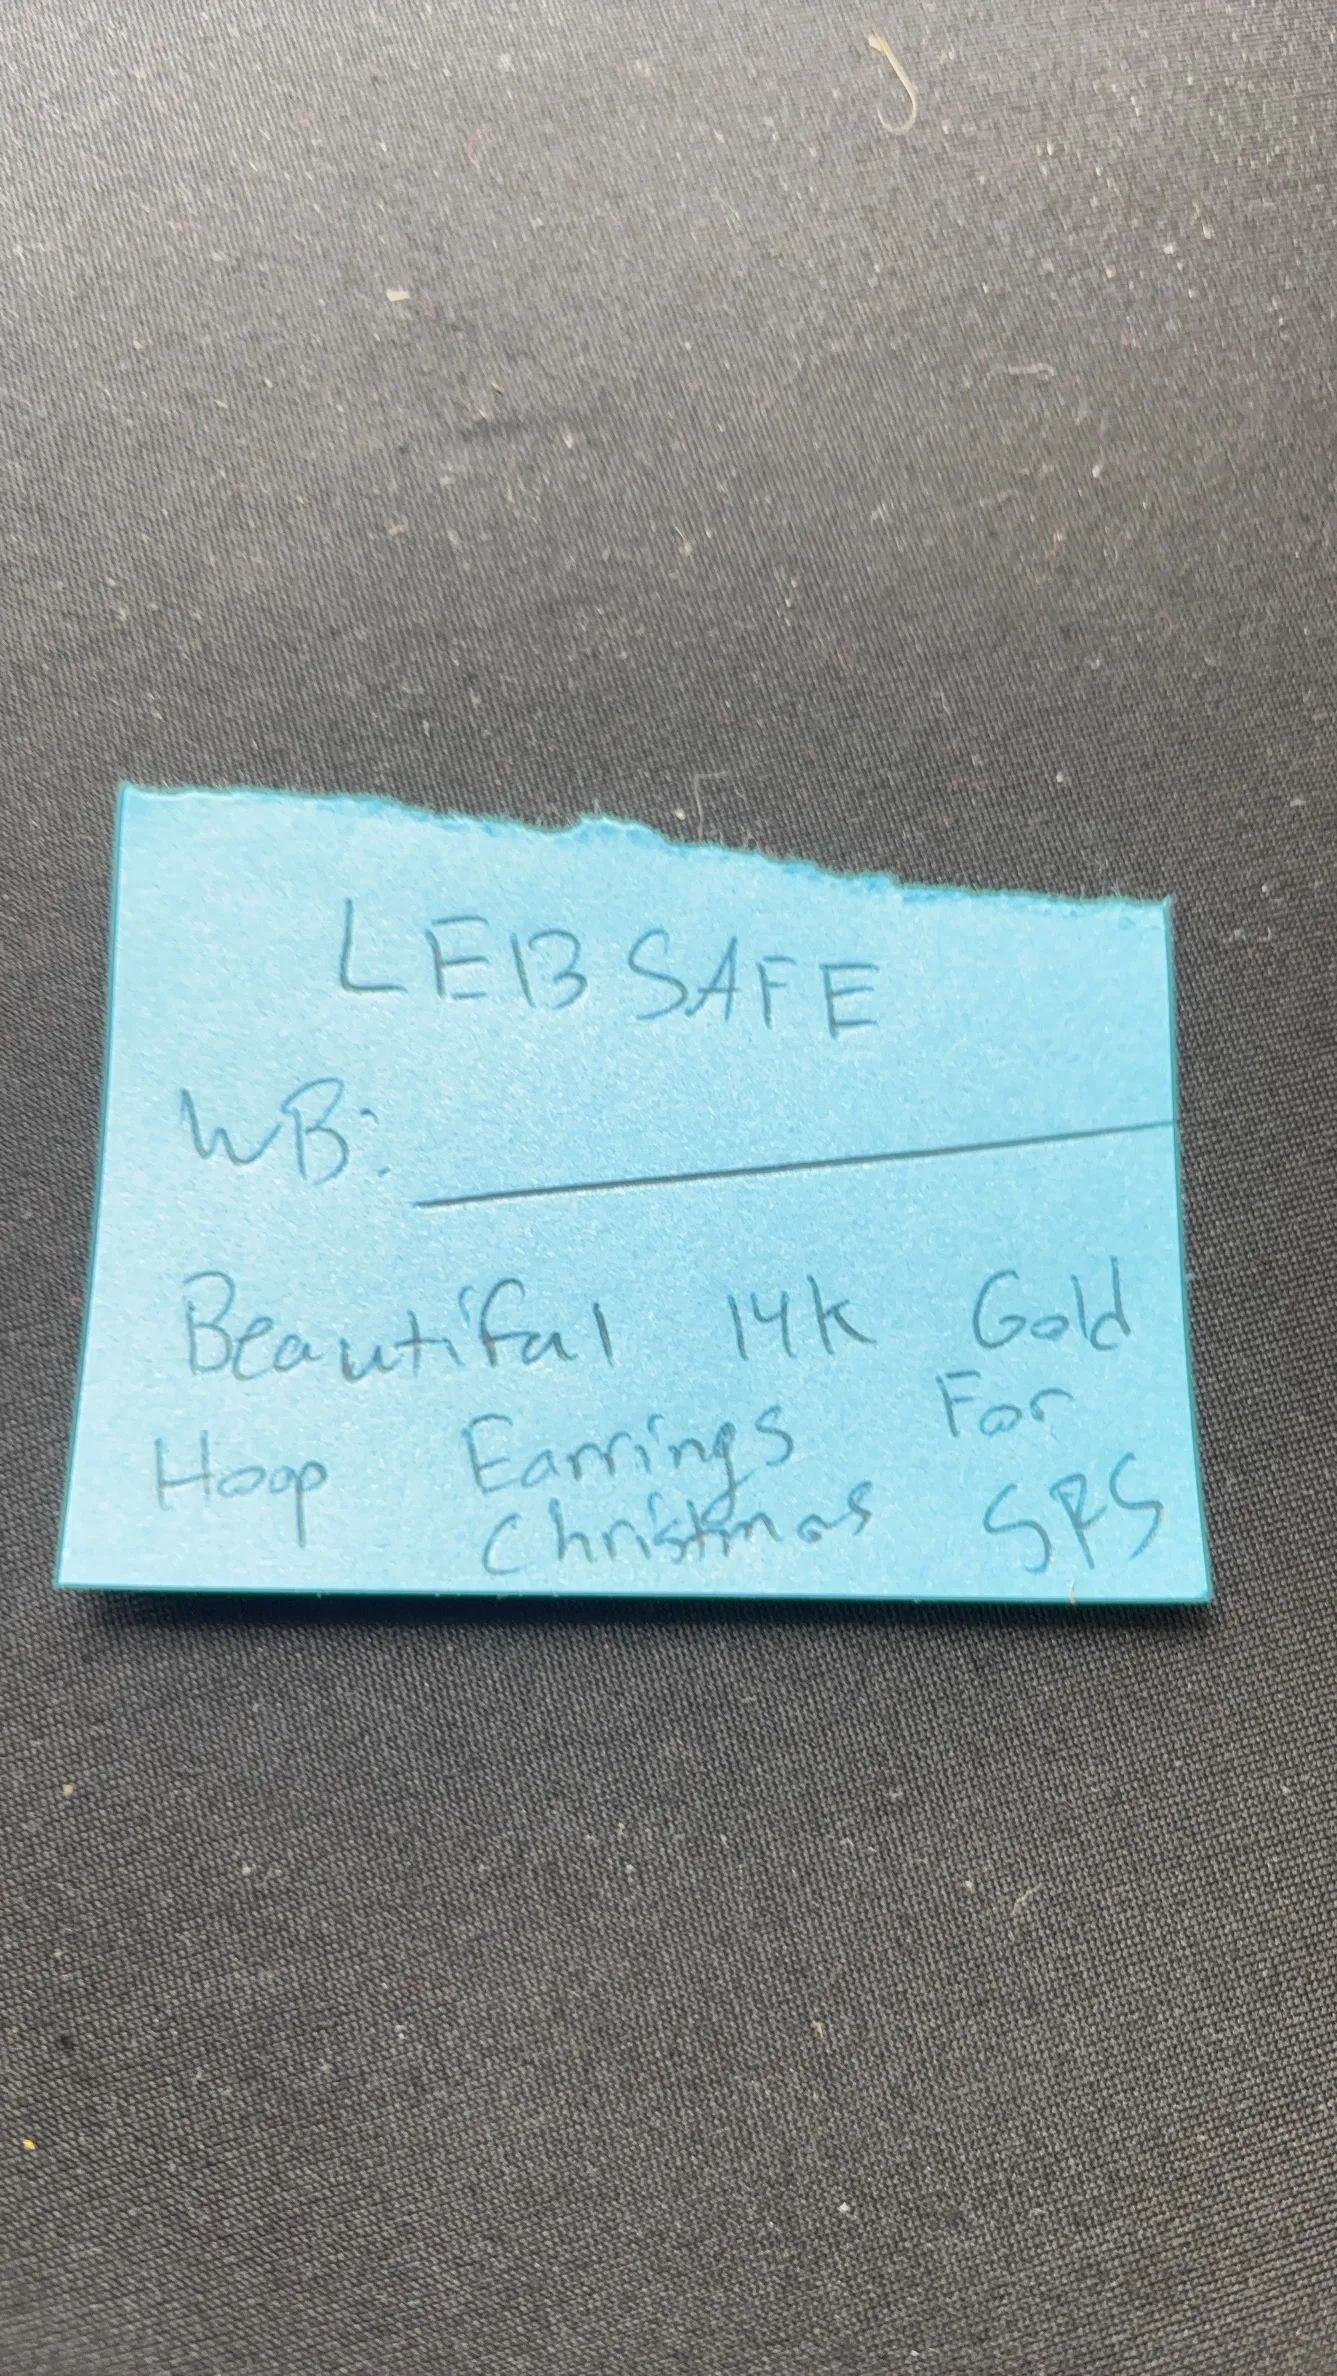 LEB SAFE
WB:
Beautiful 14k Gold
Hoop Earrings For
Christmas